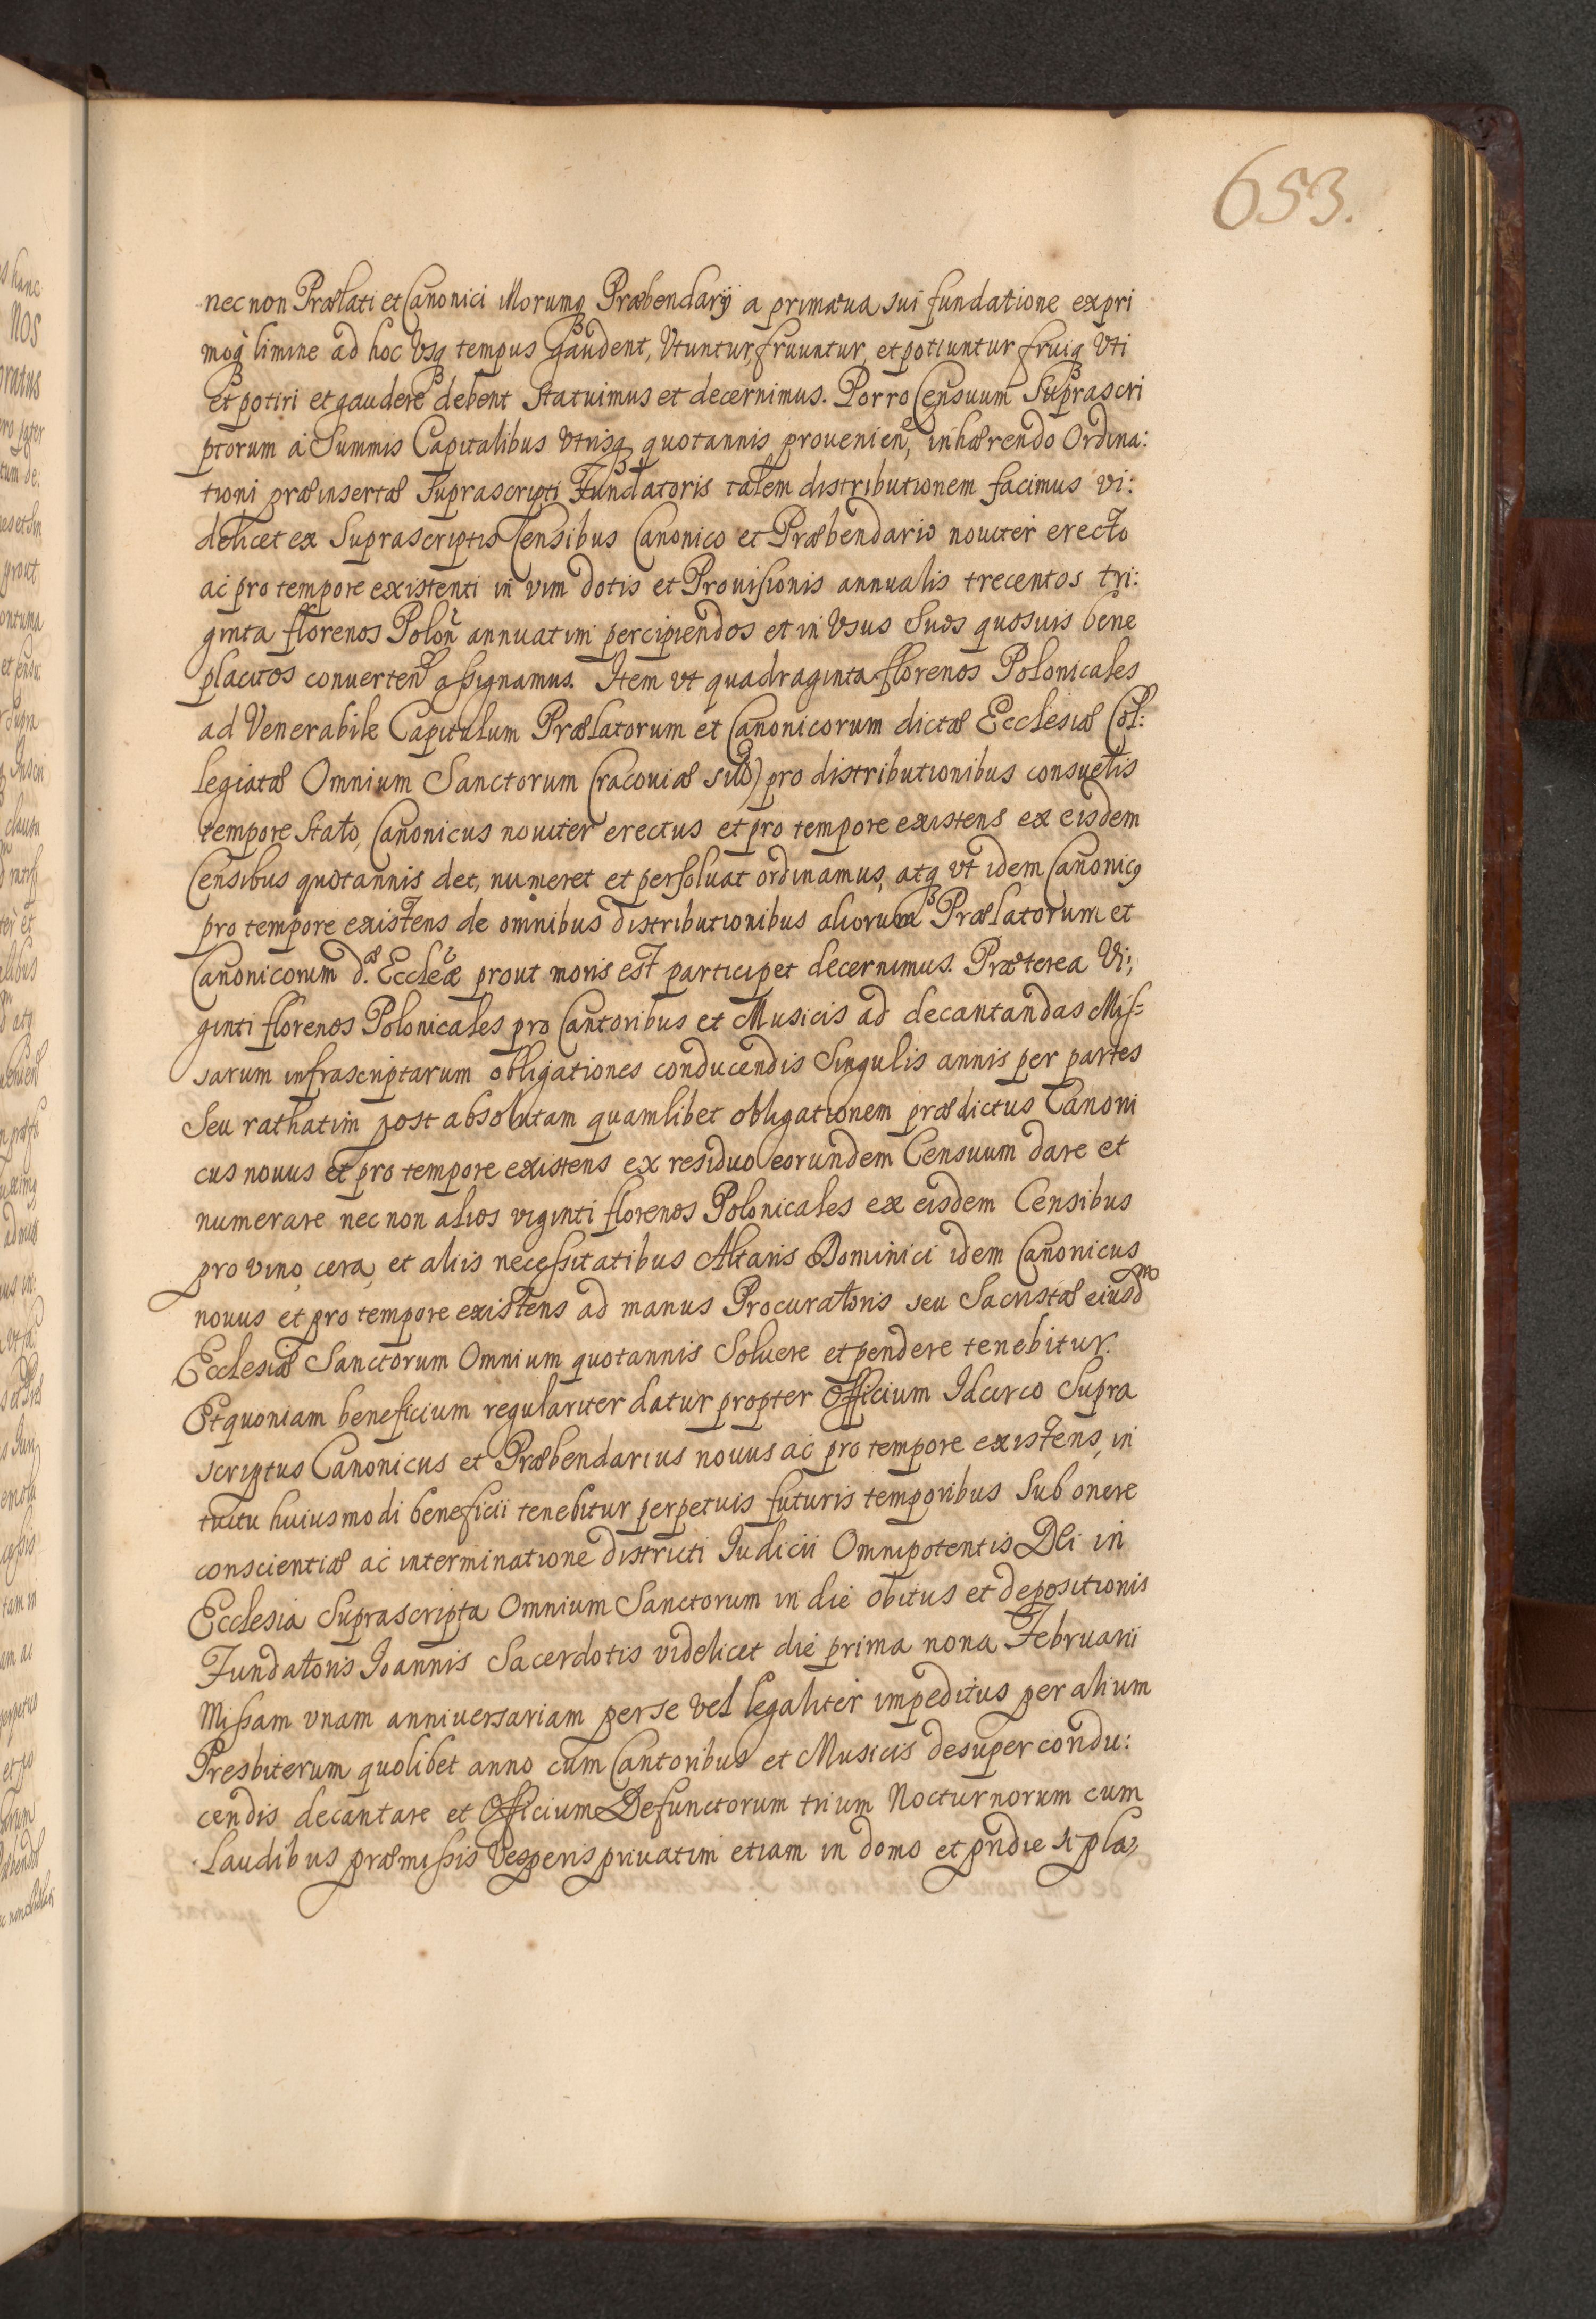 653.
nec non Prælati et Canonici illorumq₃ Præbendarÿ a primæua sui fundatione expri
moq₃ limine ad hoc Vsq₃ tempus gaudent, Vtuntur fruuntur, et potiuntur fruiq₃ Vti
et potiri et gaudere debent Statuimus et decernimus. Porro Censuum Suprascri
ptorum à Summis Capitalibus Vtrisq₃ quotannis prouenien, inhærendo Ordina:
tioni præinsertæ Suprascripti Fundatoris talem distributionem facimus vi:
delicet ex Suprascriptis Censibus Canonico et Præbendario nouiter erecto
ac pro tempore existenti in vim dotis et Prouisionis annualis trecentos tri:
ginta florenos Polon̄ annuatim percipiendos et in Vsus Suos quosuis bene
placitos conuerten̄ assignamus. Item vt quadraginta florenos Polonicales
ad Venerabile Capitulum Prælatorum et Canonicorum dictæ Ecclesiæ Col:
legiatæ Omnium Sanctorum Cracouiæ pro distributionibus consuetis
tempore Stato, Canonicus nouiter erectus et pro tempore existens ex eisdem
Censibus quotannis det, numeret et persoluat ordinamus, atq₃ vt idem Canonicꝰ
pro tempore existens de omnibus distributionibus aliorum Prælatorum et
Canonicorum d.æ Eccleæ prout moris est participet decernimus. Præterea Vi;
ginti florenos Polonicales pro Cantoribus et Musicis ad decantandas Mis:
sarum infrascriptarum obligationes conducendis Singulis annis per partes
Seu rathatim post absolutam quamlibet obligationem prædictus Canoni
cus nouus et pro tempore existens ex residuo eorundem Censuum dare et
numerare nec non alios viginti florenos Polonicales ex eisdem Censibus
pro vino, cera, et aliis necessitatibus Altaris Dominici idem Canonicus
nouus et pro tempore existens ad manus Procuratoris seu Sacristæ eiusdᵐ
Ecclesiæ Sanctorum Omnium quotannis Soluere et pendere tenebitur.
Et quoniam beneficium regulariter datur propter Officium Idcirco Supra
scriptus Canonicus et Præbendarius nouus ac pro tempore existens, in
tuitu huiusmodi beneficii tenebitur perpetuis futuris temporibus Sub onere
conscientiæ ac interminatione districti Iudicii Omnipotentis DEi in
Ecclesia Suprascripta Omnium Sanctorum in die obitus et depositionis
Fundatoris Ioannis Sacerdotis videlicet die prima nona Februarii
Missam vnam anniuersariam per se vel legaliter impeditus per alium
Presbiterum quolibet anno cum Cantoribus et Musicis desuper condu:
cendis decantare et Officium Defunctorum trium Nocturnorum cum
Laudibus præmissis Vesperis priuatim etiam in domo et pridie si pla,